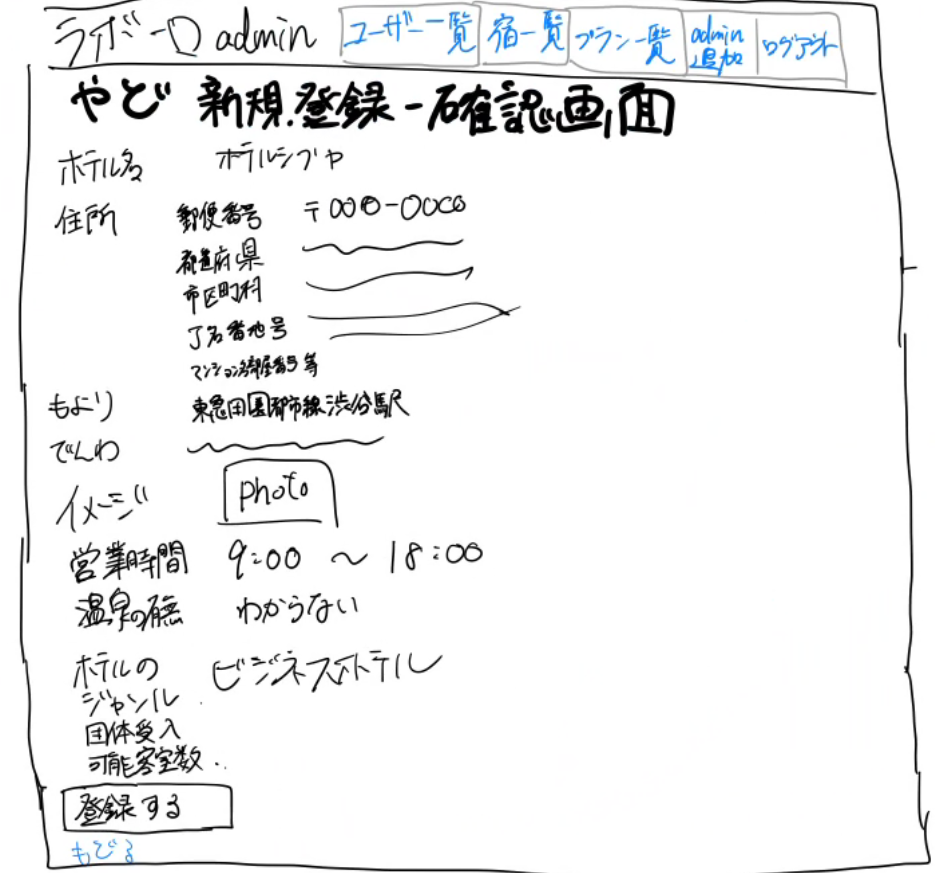 ラボーロ admin ユーザー一覧 宿一覧 プラン一覧 admin追加 ログアウト
やど 新規登録 - 確認画面
ホテル名 ホテルシブヤ
住所 郵便番号 〒000-0000
都道府県
市区町村
丁名番地号
マンション名部屋番号等
もより 東急田園都市線渋谷駅
でんわ
イメージ photo
営業時間 9:00 ～ 18:00
温泉の有無 わからない
ホテルの ビジネスホテル
ジャンル
団体受入
可能客室数
登録する
もどる